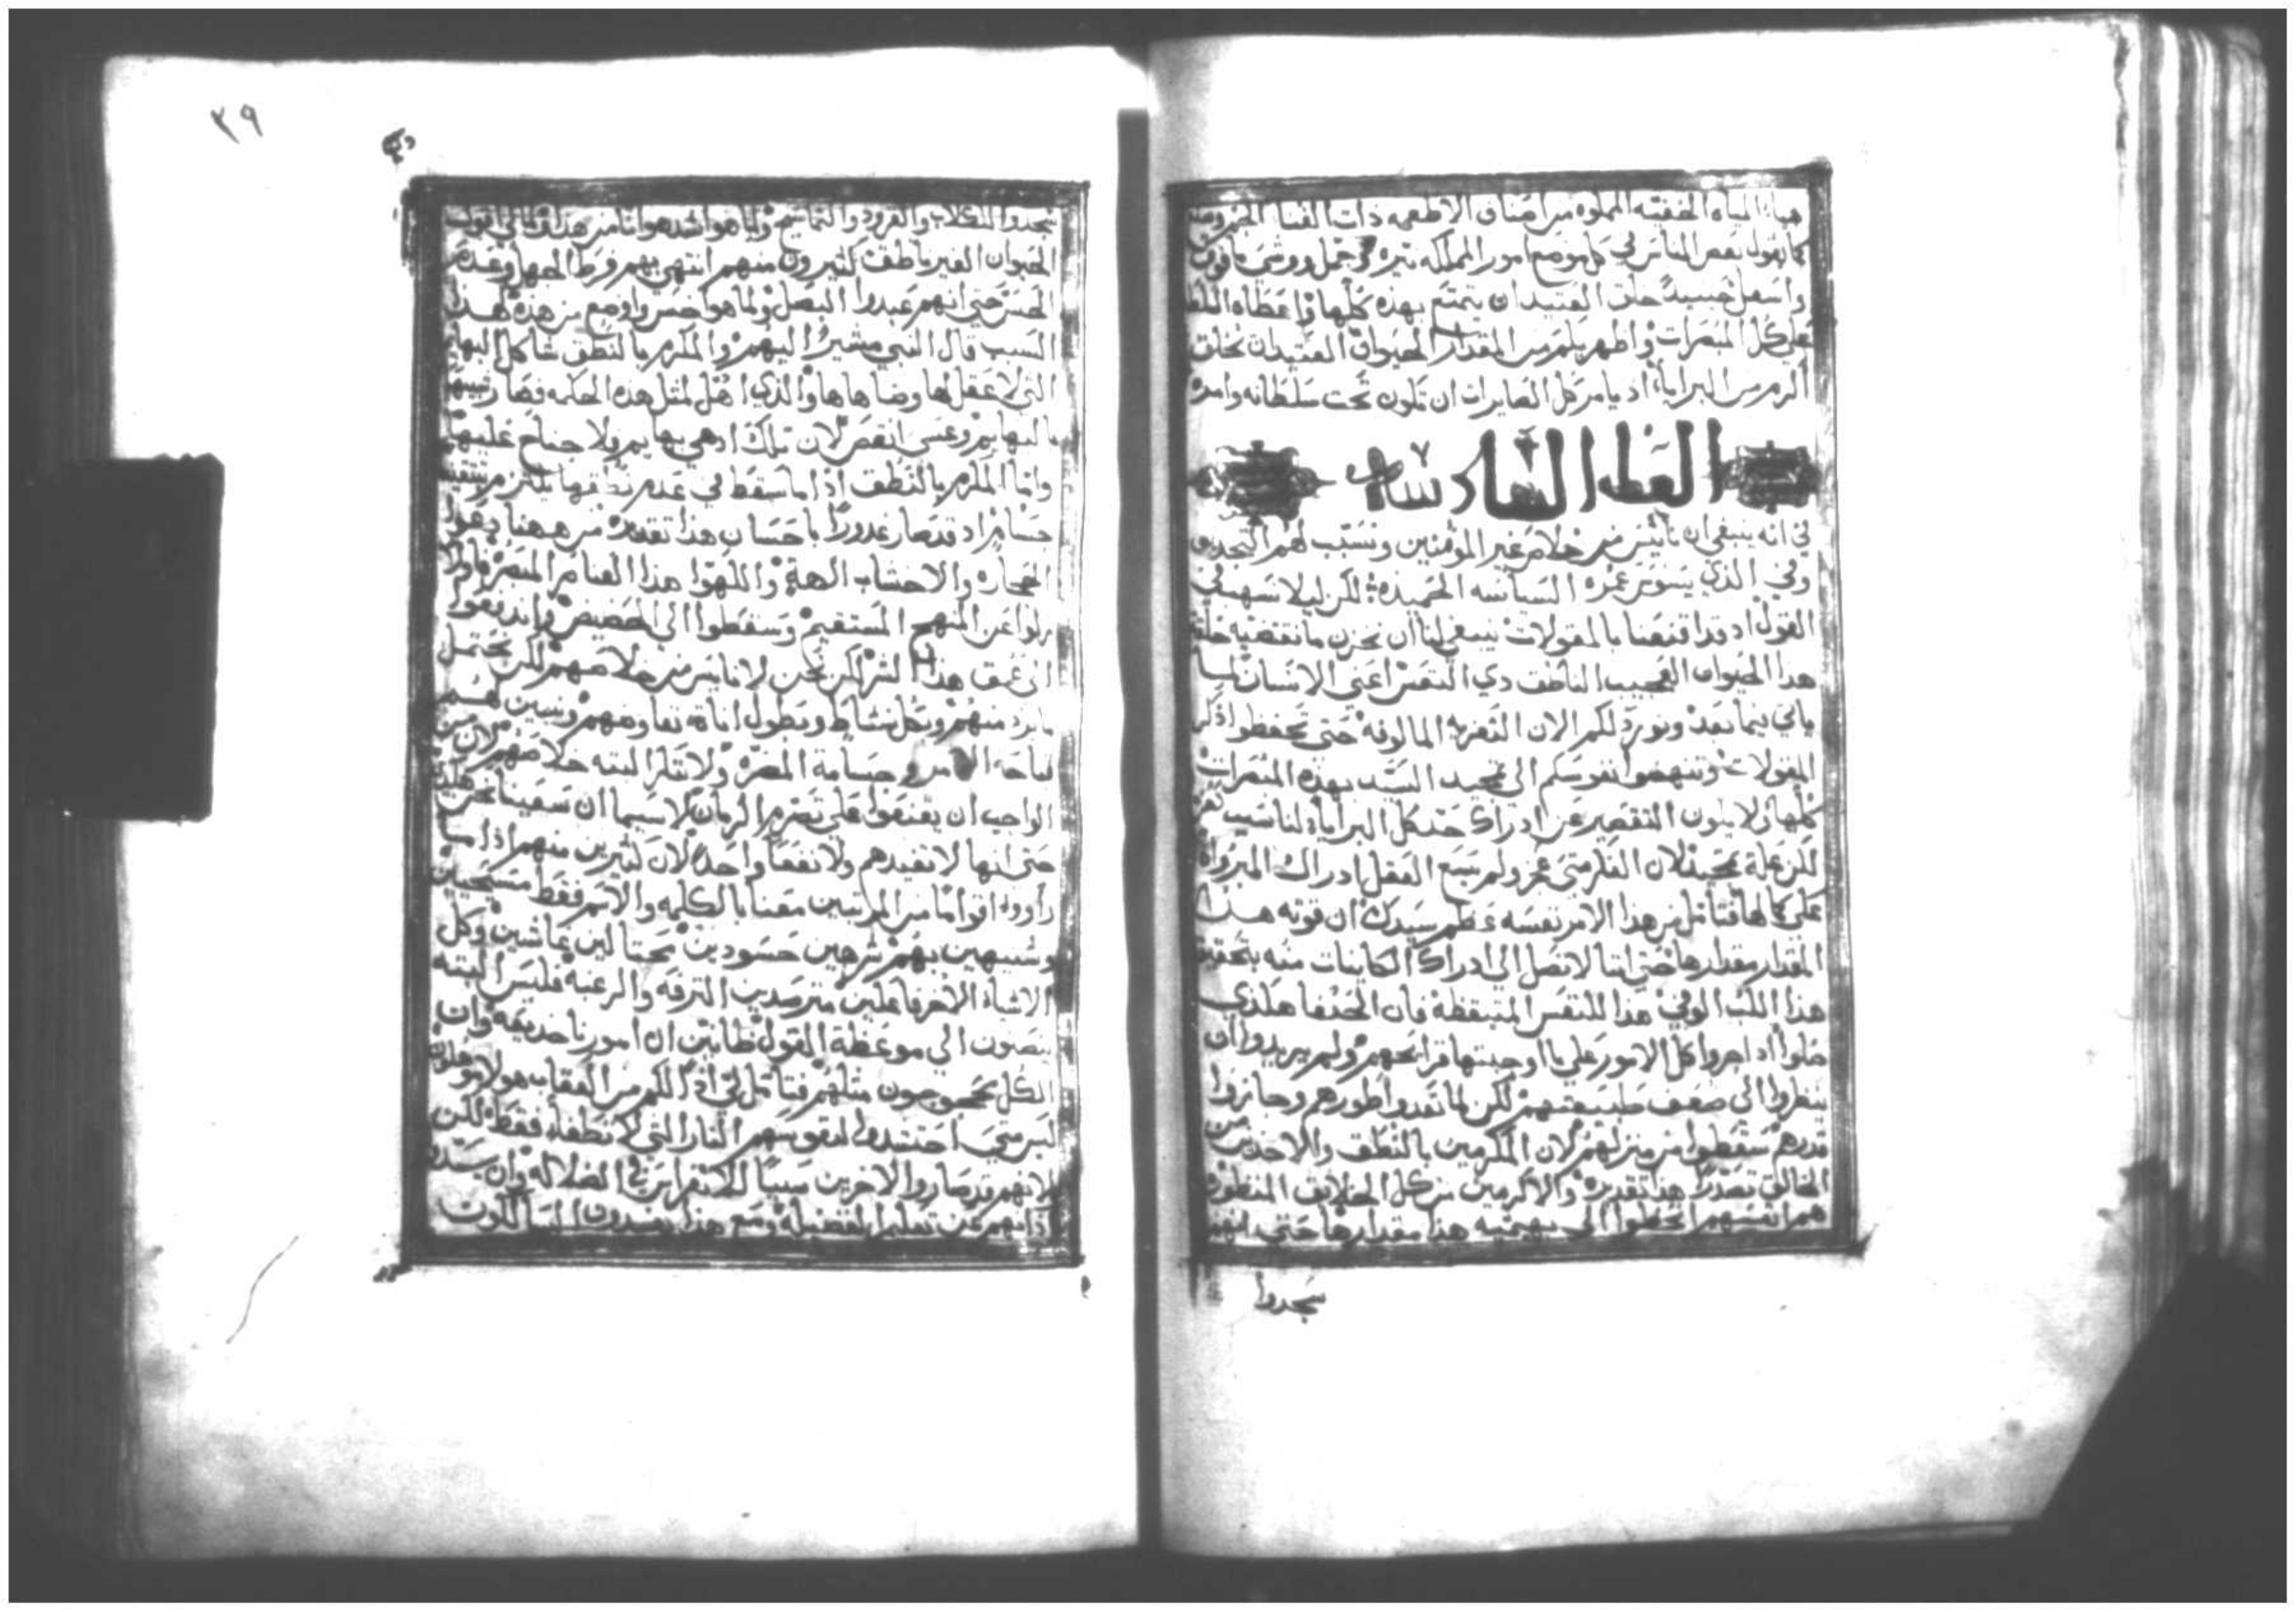 هيا المياه الخفيه المملوه من اصناف الاطعمه ذات الغنا الجزيل ومع
كما يقول بعض الناس في كل موضع امور المملكه نيره وجمل ووشى ما فوق
واسفل حينيدًا خلق العتيد ان يتمتع بهذه كلها واعطاه السلطا
على كل المبصرات واظهر بكم من المقدار الحيوان العتيد ان يخلق
اكرم من البرايا اذ يامر كل الصايرات ان تكون تحت سلطانه وامره
العظه السادسه
في انه ينبغي ان نأيس من خلاص غير المومنين ونسبب لهم التجديف
وفي الذي يسوس عمره السياسه الحميده لكن ليلا نسهب في
القول اذ قد اقنعنا بالمقولات ينبغي لنا ان نخزن ما تقتضيه خلقة
هذا الحيوان العجيب الناطق ذي النفس اعني الانسان لما
ياتي فيما بعد ونورد لكم الان التعزيه المالوفه حتى تحفظوا ذكر
المقولات وتنهضوا نفوسكم الى تمجيد السيد بهذه المبصرات
كلها ولا يكون التقصير عن ادراك حد كل البرايا لنا سبب
لكن علة تمجيد لان الفكر متى عجز ولم يسع العقل ادراك المبروات
على كمالها فتامل من هذا الامر نفسه عظم سيدك ان قوته هذا
المقدار مقدارها حتى اننا لا نصل الى ادراك الكاينات منه بتحقيق
هذا اللب الوفي هذا للنفس المتيقظه فان الحنفا هكذي
ضلوا اذ اجروا كل الامور على ما اوجبتها قرايحهم ولم يريدوا ان
ينظروا الى ضعف طبيعتهم لكن لما تعدوا طورهم وجازوا
قدرهم سقطوا من منزلهم لان المكرمين بالنطق والاخذين من
الخالق تصدرًا هذا تقديره والاكرمين من كل الخلايق المنظوره
هم انفسهم انحطوا الى بهيميه هذا مقدارها حتى انهم
سجدوا
٣٩
سجدوا للكلاب والقرود والتماسيح ولما هو اشد هوانا من هذا ومالي اقول
الحيوان الغير ناطق كثيرون منهم انتهى بهم فرط الجهل وعدم
الحس حتى انهم عبدوا البصل ولما هو اخس واوضع من هذه لهذا
السبب قال النبي مشيرًا اليهم والمكرم بالنطق شاكل البهايم
التي لا عقل لها وضاهاها والذي اهل لمثل هذه الحكمه فصار شبيها
بالبهايم وعسى انقص لان تلك اذ هي بهايم فلا جناح عليها
وانما المكرم بالنطق اذا ما سقط في عدم نطقها
اذ قد صار غدورًا باحسان هذا تقديره من ههنا دعوا
الحجاره والاخشاب الهة والّهوا هذا العناصر المبصره فاولا
زلوا عن المنهج المستقيم وسقطوا الى الحضيض واندفعوا
الى عمق هذا الشر لكن نحن لا نايس من خلاصهم لكن نحتمل
ما يرد منهم وبكل نشاط وبطول اناة نفاوضهم ونبين لهم
سماجة الامر وجسامة المضره ولا نترك البته خلاصهم لان من
الواجب ان يقتنعوا على تصرم الزمان لا سيما ان سعينا نحن هكذا
حتى انها لا تفيدهم ولا نفعًا واحدًا لان كثيرين منهم اذا ما
راووا اقوامًا من المرتبين معنا بالكلمه والاسم فقط مسيحيين
وشبيهين بهم شرهين حسودين محتالين غاشين وكل
الاشياء الاخر فاعلين مترصدين الترفه والرغبه فليس البته
ينصتون الى موعظة القول ظانين ان امورنا خديعه وان
الكل محجوجون مثلهم فتامل لي اذًا لكم من العقاب هولاء موهلون
ليس متى احتشدوا لنفوسهم النار التي لا تطفا فقط لكن
لانهم قد صاروا لاخرين سببًا للاستمرار في الضلاله وان سدوا
اذانهم عن تعليم الفضيله ومع هذا يفسدون السالكون